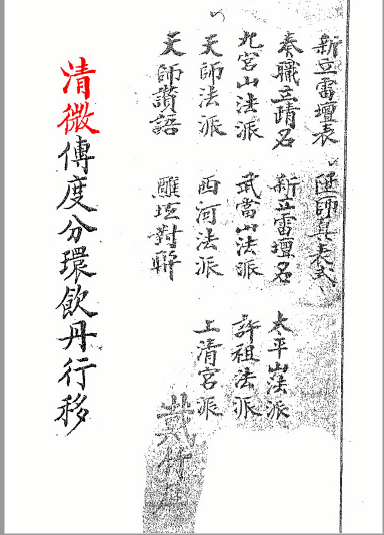 新立雷壇表　陞師真表式
奏職立靖名　新立雷壇名　太平山法派
九宮山法派　武當山法派　許祖法派
天師法派　西河法派　上清宮派
天師讚語　醮垣對聯
清微傳度分環飲丹行移